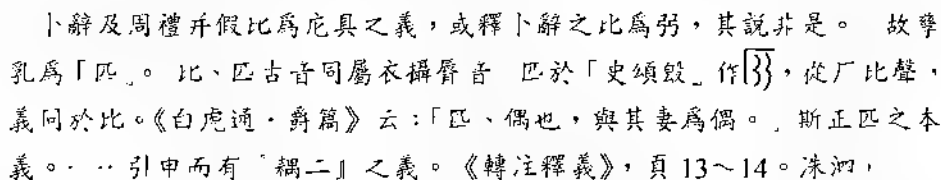 卜辭及周禮并假比為庀具之義，或釋卜辭之比為弜，其說非是。 故孳
乳為「匹」。 比、匹古音同屬衣攝脣音 匹於「史頌𣪘」作，從厂比聲，
義同於比。《白虎通．爵篇》云：「匹、偶也，與其妻為偶。」斯正匹之本
義。… 引申而有『耦二』之義。《轉注釋義》，頁13～14。洙泗，